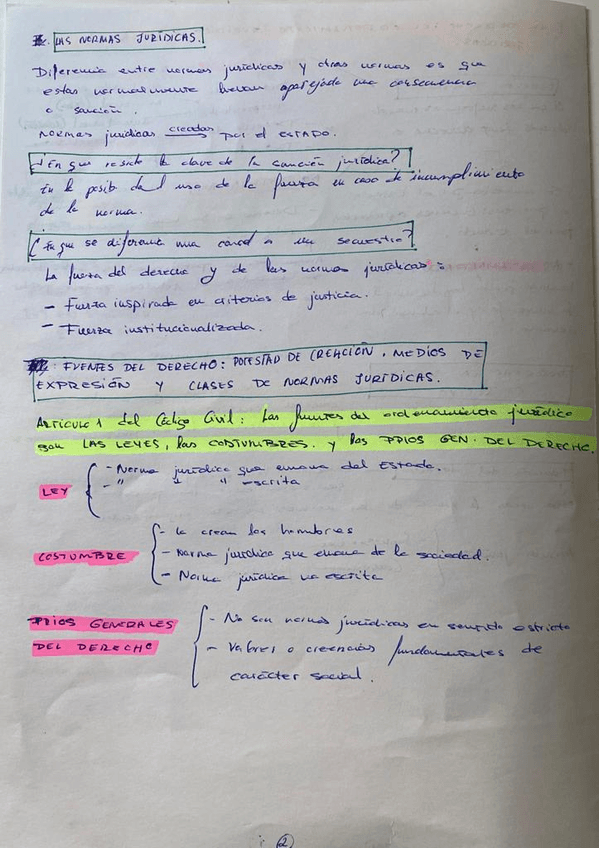 LAS NORMAS JURIDICAS.
Diferencia entre normas jurídicas y otras normas es que
estas normalmente llevan aparejada una consecuencia
o sanción.
Normas jurídicas creadas por el ESTADO.
¿En que reside la clave de la sanción jurídica?
En la posib. del uso de la fuerza en caso de incumplimiento
de la norma.
¿En que se diferencia una carcel a un secuestro?
La fuerza del derecho y de las normas jurídicas:
- Fuerza inspirada en criterios de justicia.
- Fuerza institucionalizada.
FUENTES DEL DERECHO: POTESTAD DE CREACIÓN, MEDIOS DE
EXPRESIÓN Y CLASES DE NORMAS JURÍDICAS.
Artículo 1 del Código Civil: Las fuentes del ordenamiento jurídico
son LAS LEYES, las COSTUMBRES. y los PPIOS GEN. DEL DERECHO.
- Norma jurídica que emana del Estado.
LEY
- " " " escrita
- La crean los hombres
COSTUMBRE - Norma jurídica que emana de la sociedad.
- Norma jurídica no escrita
PPIOS GENERALES - No son normas jurídicas en sentido estricto
DEL DERECHO - Valores o creencias fundamentales de
carácter social.
2